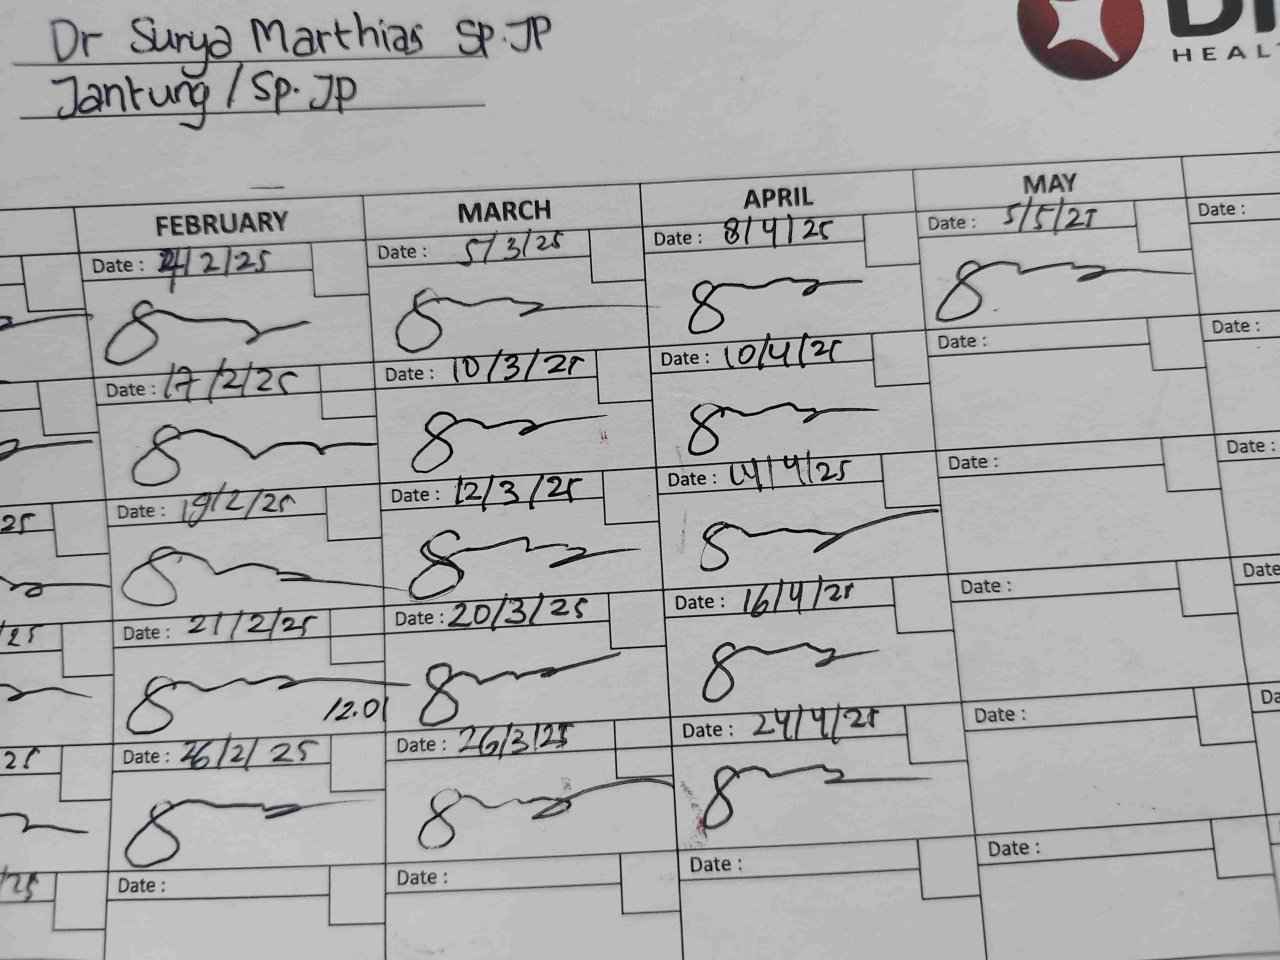 Dr Surya Marthias Sp.JP
Jantung / Sp.JP
HEAL
FEBRUARY MARCH APRIL MAY
Date : 4/2/25 Date : 5/3/25 Date : 8/4/25 Date : 5/5/25 Date :
Date : 17/2/25 Date : 10/3/25 Date : 10/4/25 Date : Date :
25 Date : 19/2/25 Date : 12/3/25 Date : 14/4/25 Date : Date :
/25 Date : 21/2/25 Date : 20/3/25 Date : 16/4/25 Date : Date
12.01
25 Date : 26/2/25 Date : 26/3/25 Date : 24/4/25 Date : Da
/25 Date : Date : Date : Date :